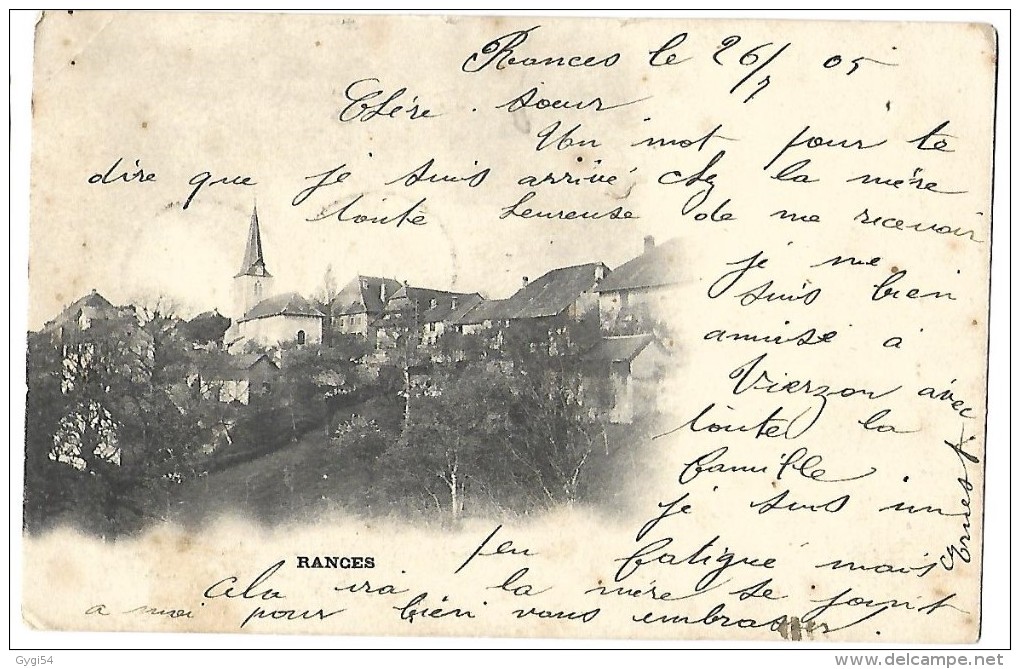 Rances le 26/7 05
Chére soeur
Un mot pour te
dire que je suis arrivé chez la mére
toute heureuse de me recevoir
je me
suis bien
amusé à
Vierzon avec
toute la
famille
je suis un
peu fatigué mais
RANCES
cela ira la mére se joint
a moi pour bien vous embrasser
Ernest
Gygi54
delcampe.net